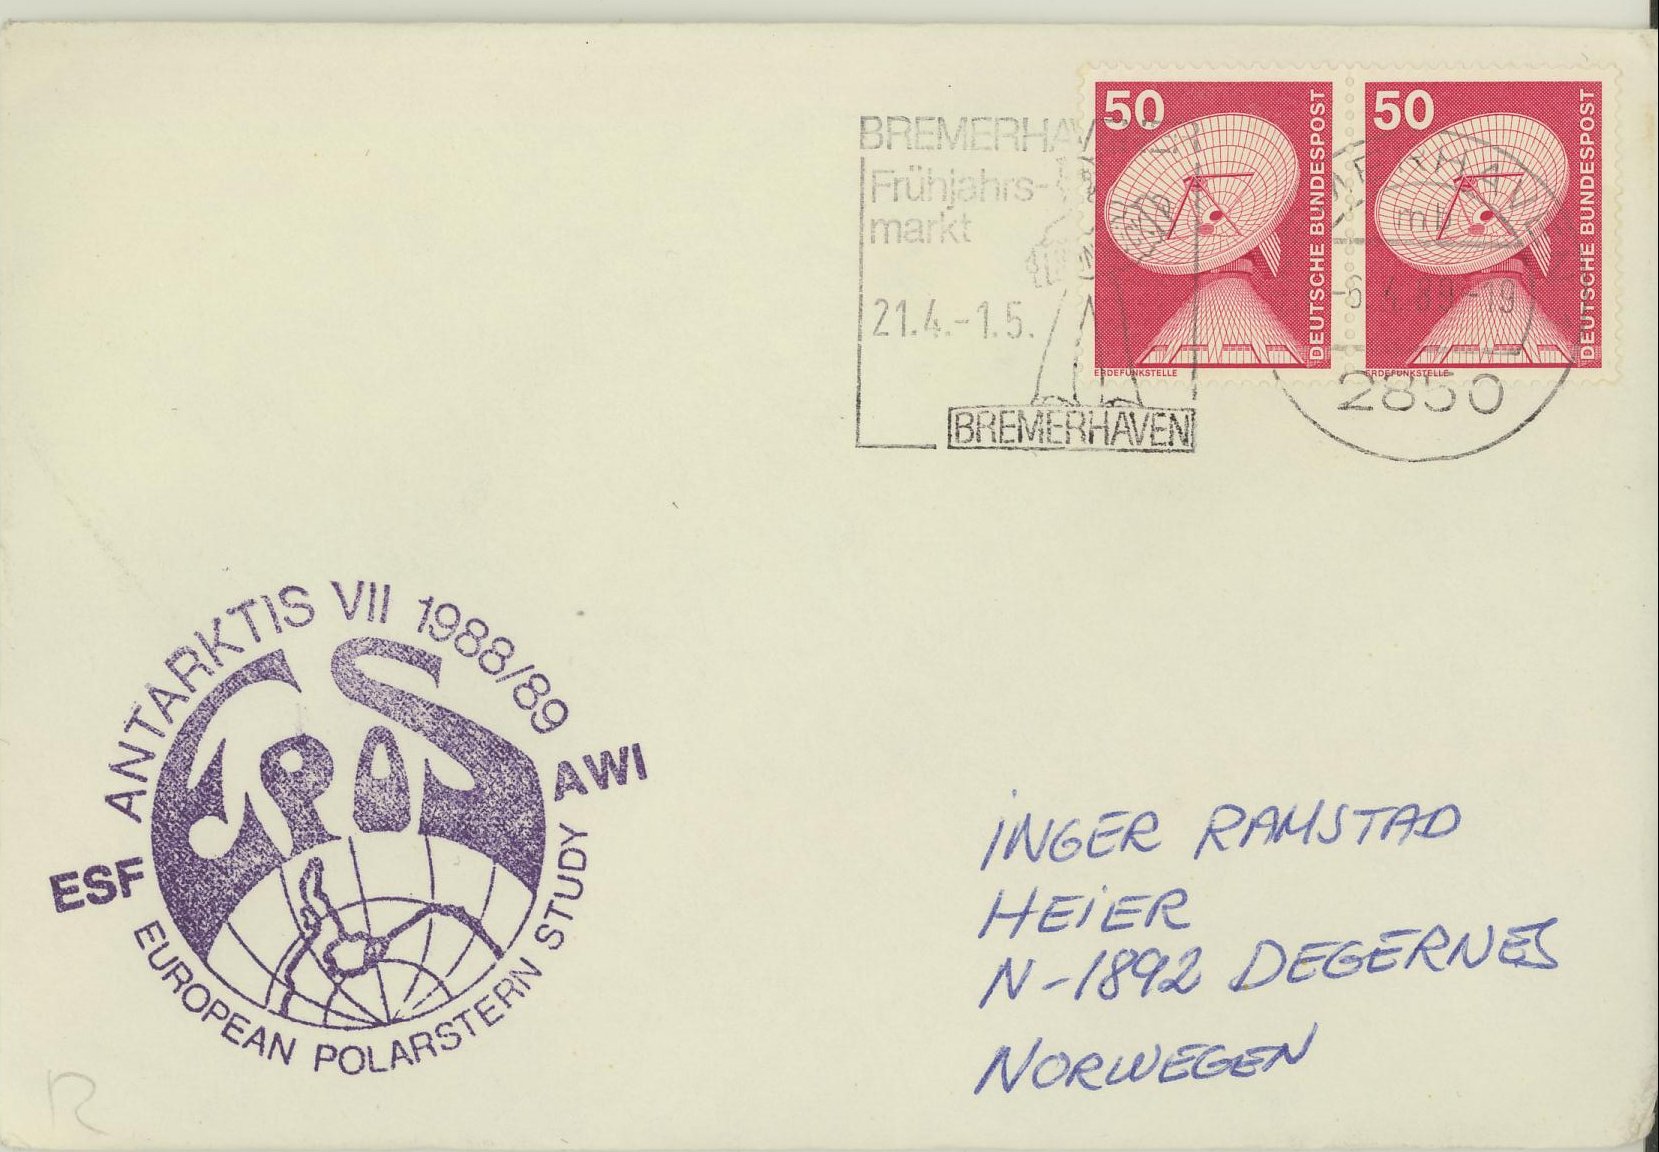 50
DEUTSCHE BUNDESPOST
ERDEFUNKSTELLE
50
DEUTSCHE BUNDESPOST
ERDEFUNKSTELLE
BREMERHAVEN
Frühjahrs-
markt
21.4.-1.5.
BREMERHAVEN
-6.4.89-19
2850
ANTARKTIS VII 1988/89
EPOS
ESF
AWI
EUROPEAN POLARSTERN STUDY
INGER RAMSTAD
HEIER
N-1892 DEGERNES
NORWEGEN
R